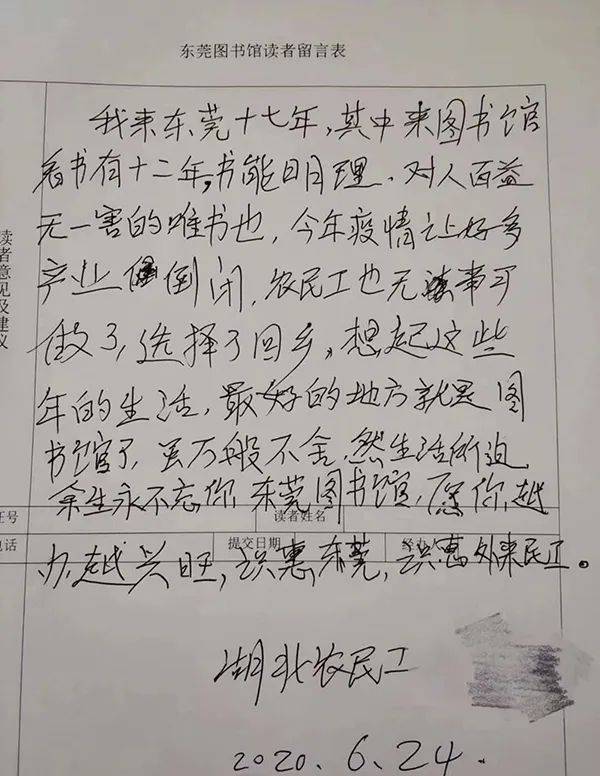 东莞图书馆读者留言表
我来东莞十七年，其中来图书馆
看书有十二年，书能明理，对人百益
无一害的唯书也，今年疫情让好多
产业倒闭，农民工也无事可
做了，选择了回乡，想起这些
年的生活，最好的地方就是图
书馆了，虽万般不舍，然生活所迫
余生永不忘你，东莞图书馆，愿你越
办越兴旺，识惠东莞，识惠外来民工。
读者意见及建议
证号
读者姓名
电话
提交日期
经办
湖北农民工
2020.6.24.